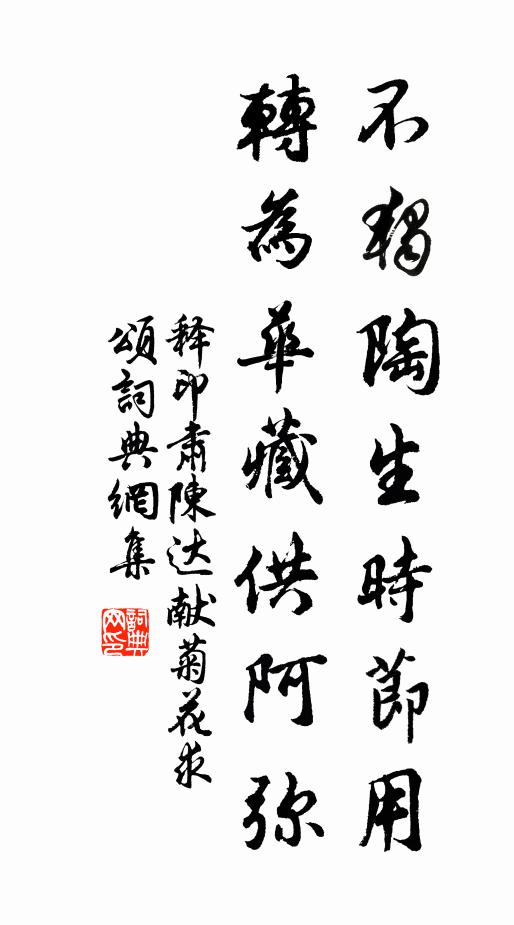 不獨陶生時節用
轉為華藏供阿弥
释印肃陳达献菊花求
頌詞典網集
詞典
网印